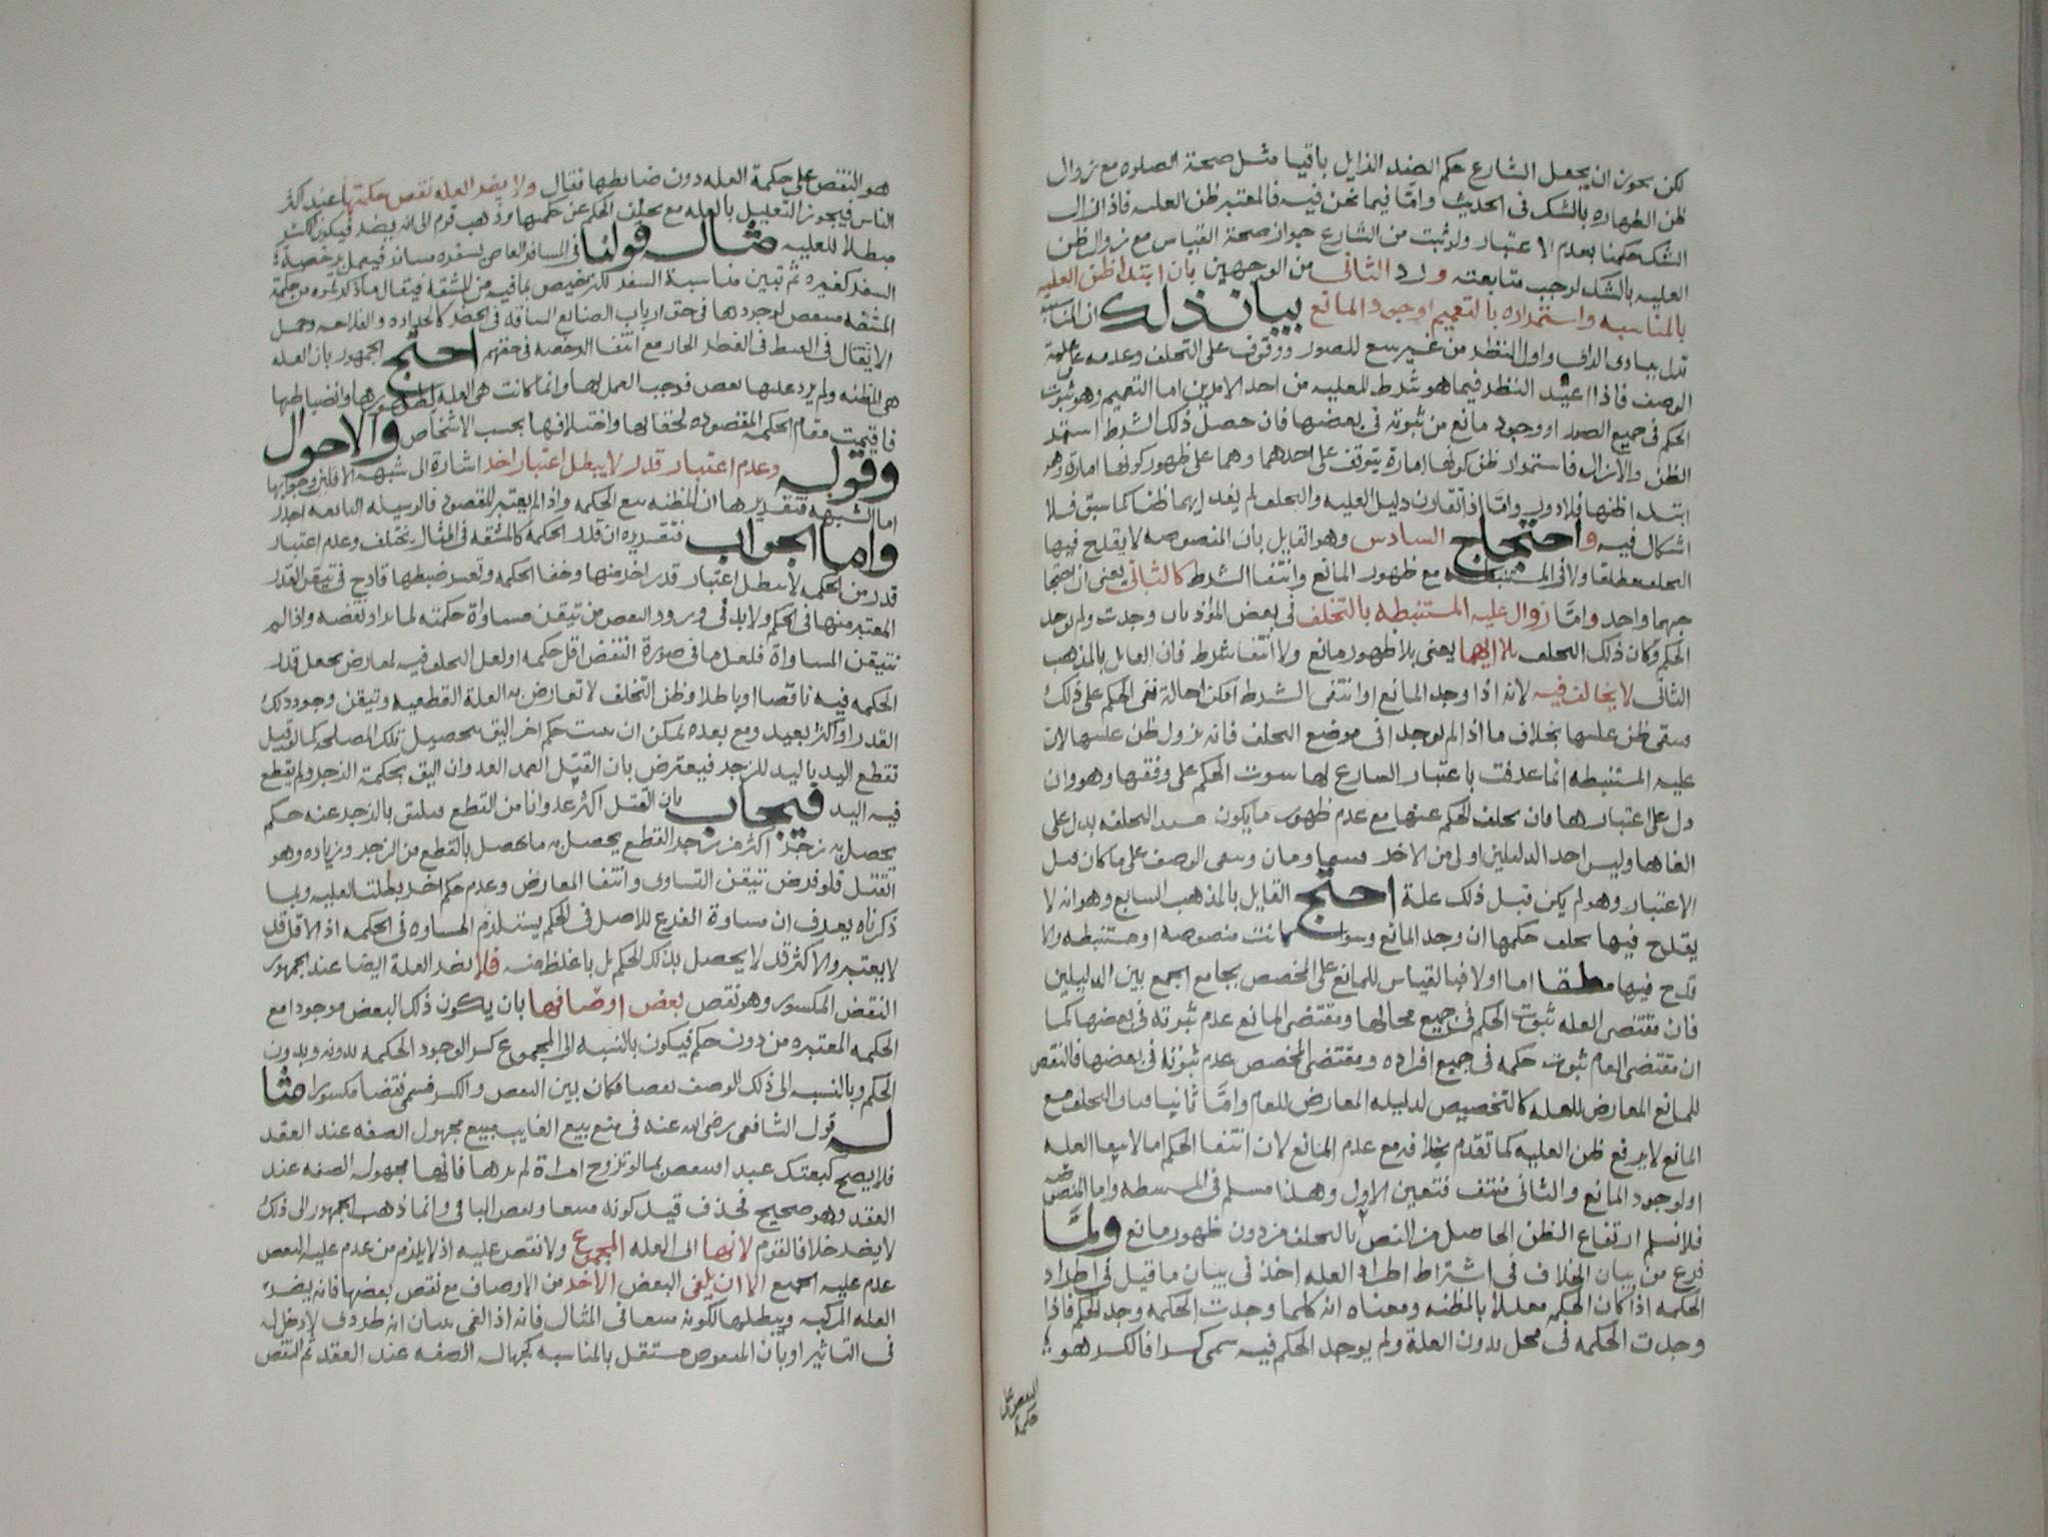 لكن يجوز ان يجعل الشارع حكم الضد الزايل باقيا مثل صحة الصلوه مع زوال
ظن الطهاره بالشك فى الحديث وامّا فيما نحن فيه فالمعتبر ظن العليه فاذا زال
الشك حكمنا بعدم الاعتبار ولو ثبت من الشارع جواز صحة القياس مع زوال ظن
العليه بالشك لوجب متابعته ورد الثانى من الوجهين بان ابتدا ظن العليه
بالمناسبه واستمراره بالتعميم او وجود المانع بيان ذلك ان المناسبه
تدل ببادى الراى واول النظر من غير تتبع للصور ووقوف على التخلف وعدمه على علية
الوصف فاذا اعيد النظر فيما هو شرط للعليه من احد الامرين اما التعميم وهو ثبوت
الحكم فى جميع الصور او وجود مانع من ثبوته فى بعضها فان حصل ذلك الشرط استمر
الظن والا زال فاستمرار ظن كونها امارة يتوقف على احدهما وهما على ظهور كونها امارة وهو
ابتدا ظنها فلا دور وامّا اذا تقاون دليل العليه والتخلف لم يفد ايهما ظنا كما سبق فلا
اشكال فيه واحتجاج السادس وهو القايل بان المنصوصه لا يقدح فيها
التخلف مطلقا ولا فى المستنبطه مع ظهور المانع وانتفا الشرط كالثانى يعنى ان احتجا
جهما واحد وامّا زوال عليه المستنبطه بالتخلف فى بعض الموارد بان وجدت ولم يوجد
الحكم وكان ذلك التخلف بلا ايهما يعنى بلا ظهور مانع ولا انتفا شرط فان القايل بالمذهب
الثانى لا يخالف فيه لانه اذا وجد المانع او انتفى الشرط امكن احالة نفى الحكم على ذلك
وبقى ظن عليتها بخلاف ما اذا لم يوجدا فى موضع التخلف فانه يزول ظن عليتها لان
عليه المستنبطه انما عرفت باعتبار الشارع لها بثبوت الحكم على وفقها وهو وان
دل على اعتبارها فان تخلف الحكم عنها مع عدم ظهور ما يكون التخلف يدل على
الغاها وليس احد الدليلين اولى من الاخر فيتساقطان وبقى الوصف على ما كان قبل
الاعتبار وهو لم يكن قبل ذلك علة احتج القايل بالمذهب السابع وهو انه لا
يقدح فيها تخلف حكمها ان وجد المانع وسوا كانت منصوصه او مستنبطه والا
قدح فيها مطلقا اما اولا فبالقياس للمانع على المخصص بجامع الجمع بين الدليلين
فان مقتضى العله ثبوت الحكم فى جميع محالها ومقتضى المانع عدم ثبوته فى بعضها كما
ان مقتضى العام ثبوت حكمه فى جميع افراده ومقتضى المخصص عدم ثبوته فى بعضها فالنقص
للمانع المعارض للعله كالتخصيص لدليله المعارض للعام وامّا ثانيا فبان التخلف مع
المانع لا يرفع ظن العليه كما تقدم بخلافه مع عدم المانع لان انتفا الحكم اما لانتفا العله
او لوجود المانع والثانى منتف فتعين الاول وهذا مسلم فى المستنبطه واما المنصوصه
فلا نسلم ارتفاع الظن الحاصل من النص بالتخلف من دون ظهور مانع ولمّا
فرغ من بيان الخلاف فى اشتراط اطراد العله اخذ فى بيان ما قيل فى اطراد
الحكمه اذا كان الحكم معللا بالمظنه ومعناه انه كلما وجدت الحكمه وجد الحكم فاذا
وجدت الحكمه فى محل بدون العلة ولم يوجد الحكم فيه سمى كسرا فالكسر هو
النقص على حكمة
هو النقص على حكمة العله دون ضابطها فقال ولا يضر العله نقص حكمتها عند اكثر
الناس فيجوز التعليل بالعله مع تخلف الحكم عن حكمها وذهب قوم الى انه يضر فيكون الكسر
مبطلا للعليه مثاله قولنا فى المسافر العاصى بسفره مسافر فيعمل برخصة
السفر كغيره ثم تبين مناسبة السفر للترخيص بما فيه من المشقه فيقال ما ذكرتموه من حكمة
المشقه منتقض لوجودها فى حق ارباب الصنايع الشاقه فى الحضر كالحداده والفلاحه وحمل
الاثقال فى القيظ فى القطر الحار مع انتفا الرخصه فى حقهم احتج الجمهور بان العله
هى المظنه ولم يرد عليها نقض فوجب العمل بها وانما كانت هى العله لظهورها وانضباطها
فاقيمت مقام الحكمه المقصوده لخفائها واختلافها بحسب الاشخاص والاحوال
وقوله وعدم اعتبار قدر لا يبطل اعتبار اخر اشارة الى شبهه الاقلين وجوابها
اما الشبهه فتقديرها ان المظنه تبع الحكمه واذا لم يعتبر المقصود فالوسيله التابعه اجدر
واما الجواب فتقديره ان قدر الحكمه كالمشقه فى المثال يختلف وعدم اعتبار
قدر من الحكمه لا يبطل اعتبار قدر اخر منها وخفا الحكمه وتعسر ضبطها قادح فى تيقن القدر
المعتبر منها فى الحكم ولا بد فى ورود النقص من تيقن مساواة حكمته لما يراد نقضه واذا لم
نتيقن المساواة فلعل ما فى صورة النقض اقل حكمه او لعل التخلف فيه لمعارض يجعل قدر
الحكمه فيه ناقصا او باطلا وظن التخلف لا تعارض به العلة القطعيه وتيقن وجود ذلك
القدر او اكثر بعيد ومع بعده يمكن ان يثبت حكم اخر اليق بتحصيل تلك المصلحه كما لو قيل
تقطع اليد باليد للزجر فيعترض بان القتل العمد العدوان اليق بحكمة الزجر ولم يقطع
فيه اليد فيجاب بان القتل اكثر عدوانا من القطع فيليق بالزجر عنه حكم
يحصل به زجر اكثر من زجر القطع يحصل به ما يحصل بالقطع من الزجر وزياده وهو
القتل فلو فرض تيقن التساوى وانتفا المعارض وعدم حكم اخر بطلت العليه وبما
ذكرناه يعرف ان مساوة الفرع للاصل فى الحكم يستلزم المساوه فى الحكمه اذ الاقل قد
لا يعتبر والاكثر قد لا يحصل بذلك الحكم بل باغلظ منه فلا يضر العلة ايضا عند الجمهور
النقض المكسور وهو نقص بعض اوصافها بان يكون ذلك البعض موجودا مع
الحكمه المعتبره من دون حكم فيكون بالنسبه الى المجموع كسرا لوجود الحكمه بدونه وبدون
الحكم وبالنسبه الى ذلك الوصف نقضا فكان بين النقص والكسر فسمى نقضا مكسورا مثا
له قول الشافعى رضى الله عنه فى منع بيع الغايب مبيع مجهول الصفه عند العقد
فلا يصح كبعتك عبدا فينتقض بما لو تزوج امراة لم يرها فانها مجهولة الصفه عند
العقد وهو صحيح فحذف قيد كونه مبيعا ونقص الباقى وانما ذهب الجمهور الى ذلك
لا يضر خلافا لقوم لانها اى العله المجموع ولا نقص عليه اذ لا يلزم من عدم عليه البعض
عدم عليه الجميع الا ان يلغى البعض الاخر من الاوصاف مع نقص بعضها فانه يضر
العله المركبه ويبطلها ككونه مبيعا فى المثال فانه اذا الغى ببيان انه طردى لا دخل له
فى التاثير او بان المنقوص مستقل بالمناسبه كجهالة الصفه عند العقد ثم النقص